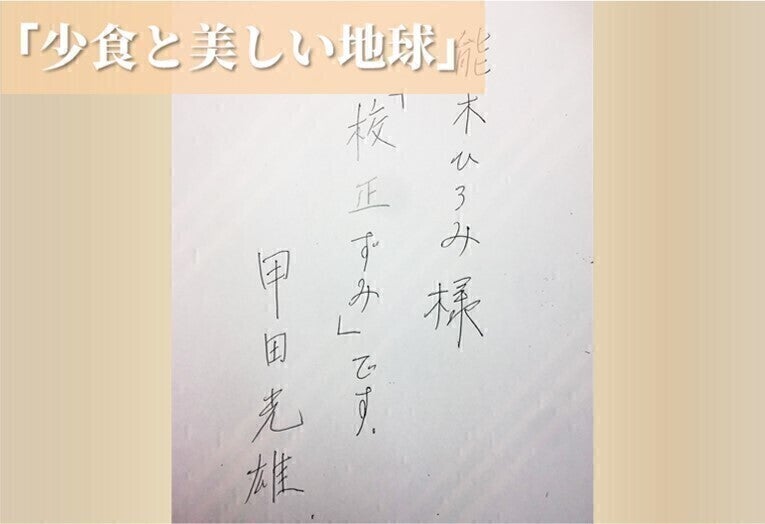 「少食と美しい地球」
能木ひろみ様
「校正ずみ」です.
甲田光雄